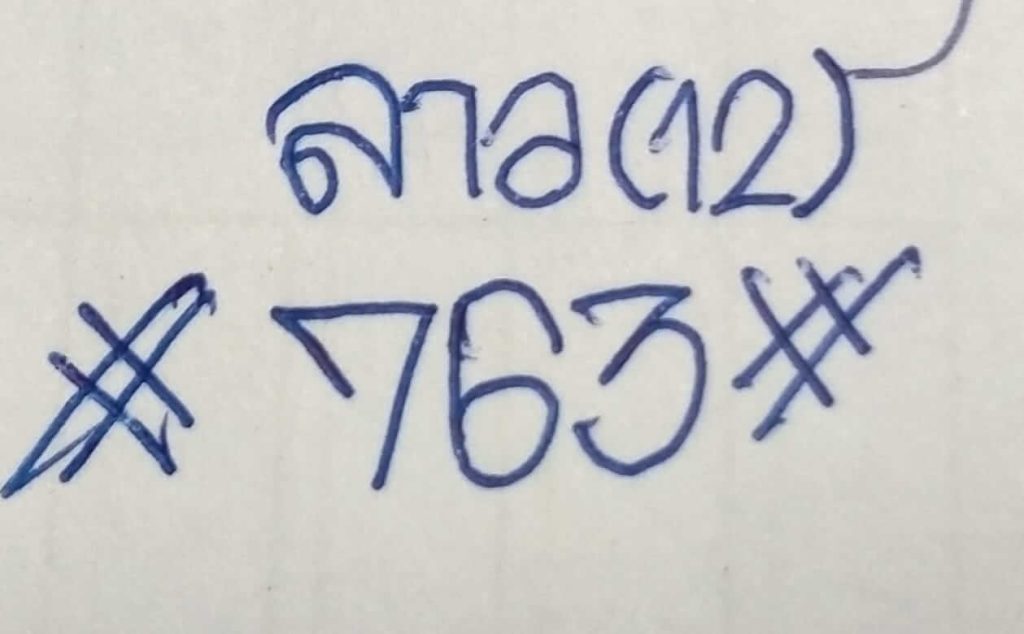 ลาว(12)
# 763 #